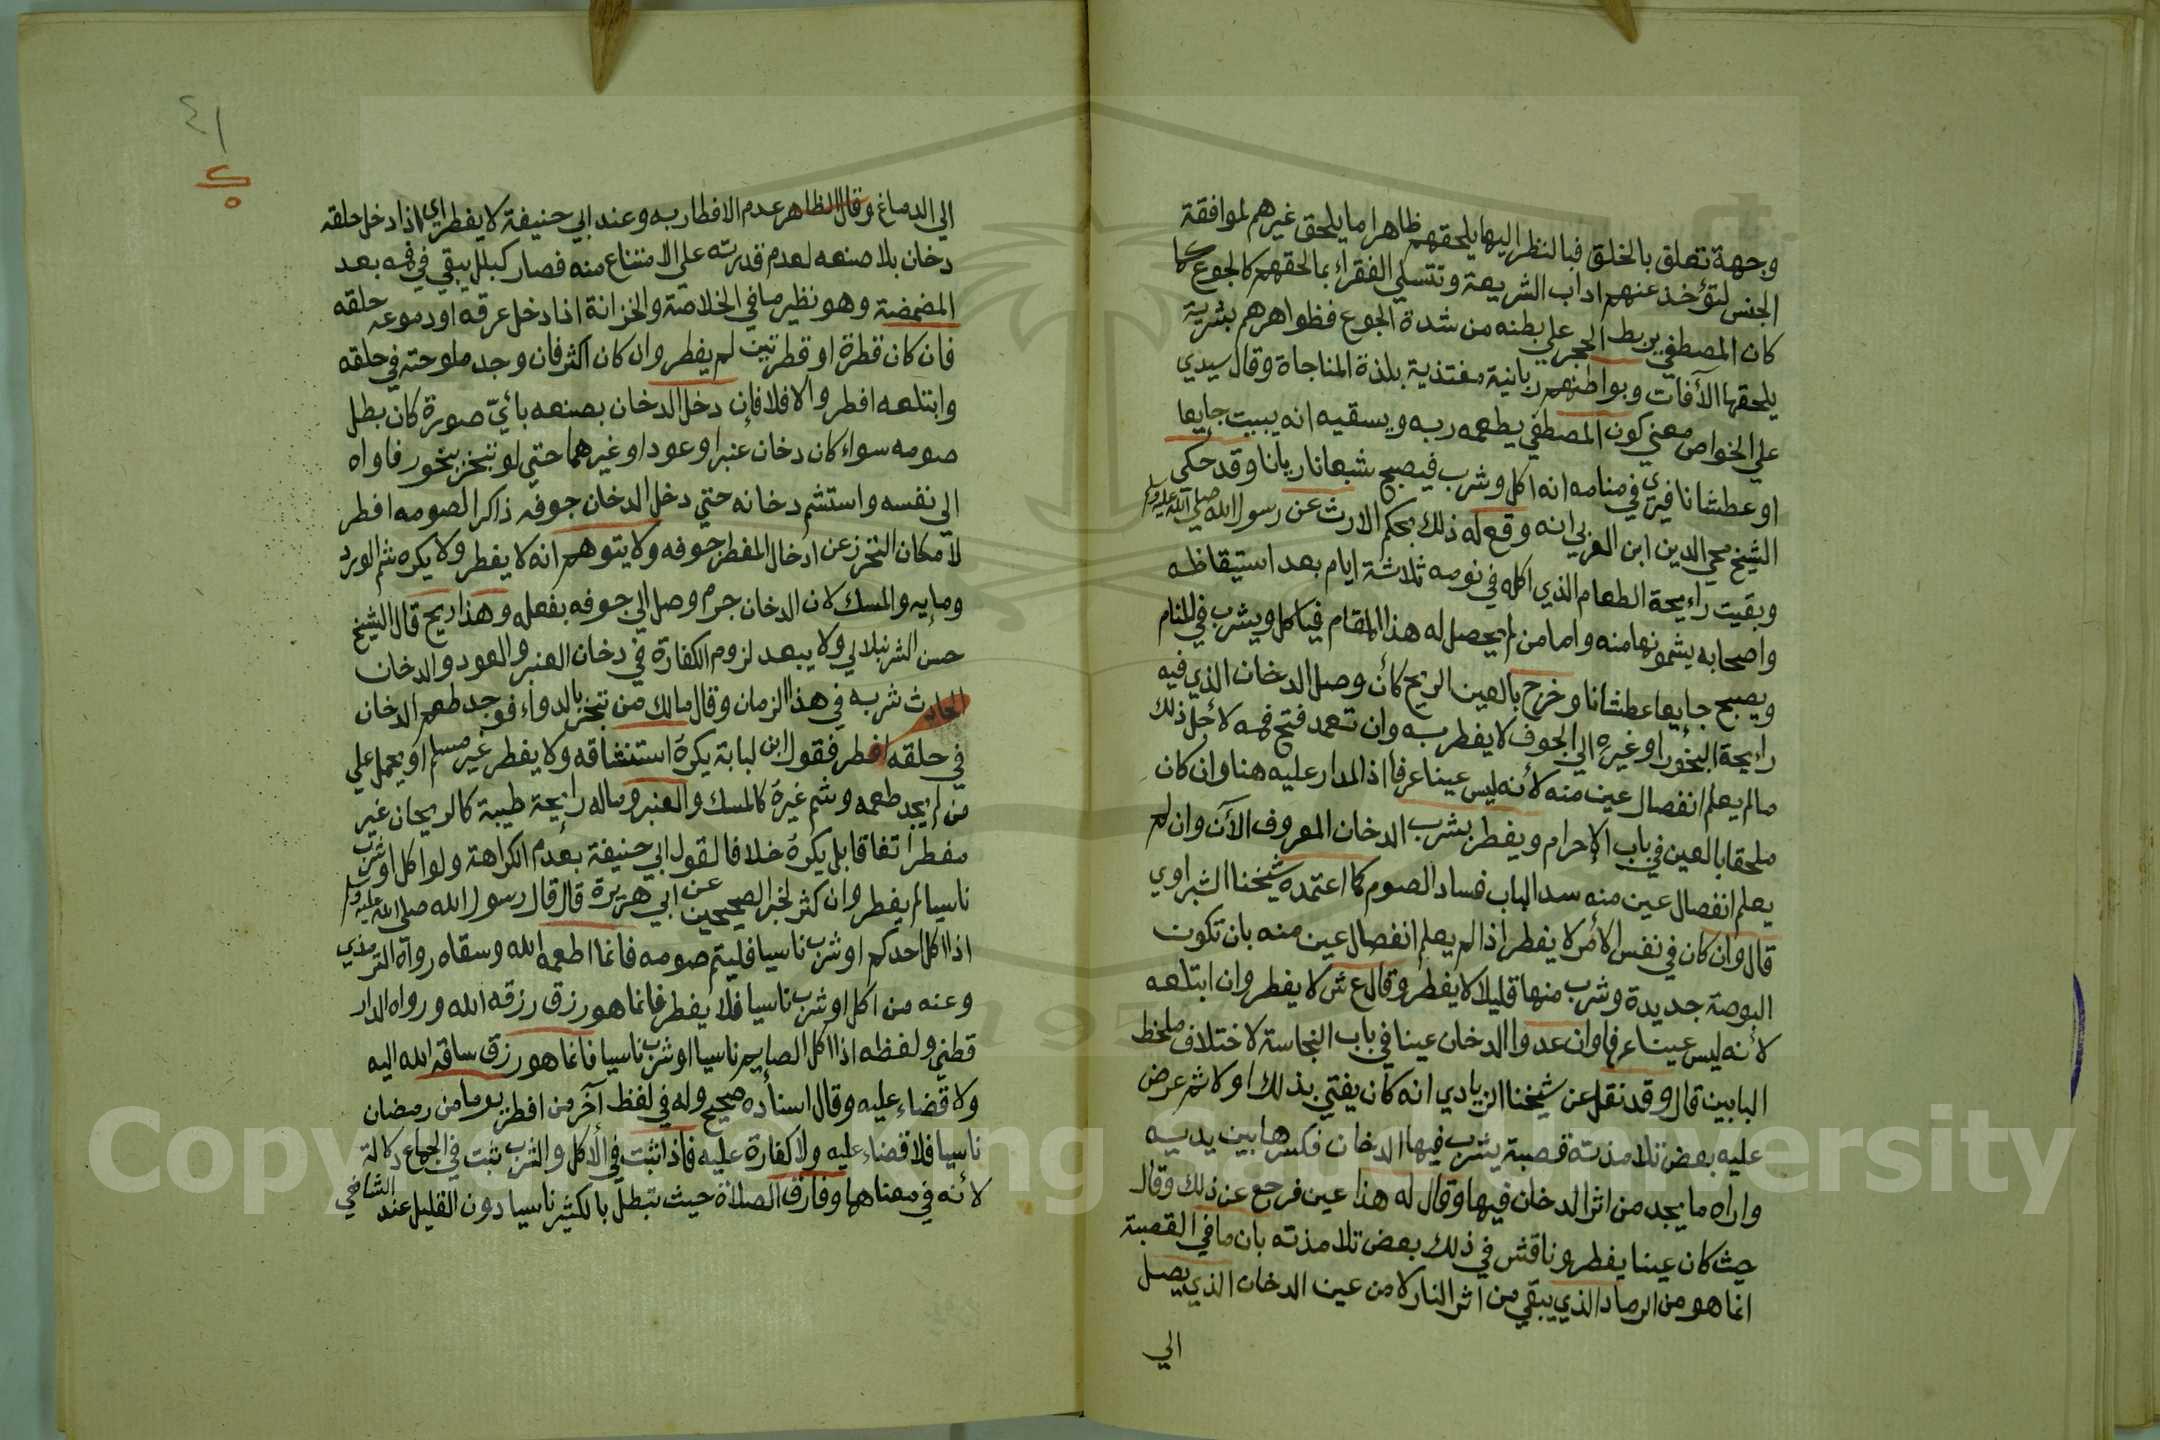 وجهة تعلق بالخلق فبالنظر اليها يلحقهم ظاهرا ما يلحق غيرهم لموافقة
الجنس لتؤخذ عنهم اداب الشريعة وتتسلي الفقراء بما لحقهم كالجوع كما
كان المصطفي يربط الحجر علي بطنه من شدة الجوع فظواهرهم بشرية
يلحقها الآفات وبواطنهم ربانية مغتذية بلذة المناجاة وقال سيدي
علي الخواص معني كون المصطفي يطعمه ربه ويسقيه انه يبيت جايعا
او عطشانا فيرى في منامه انه اكل وشرب فيصبح شبعانا ريانا وقد حكي
الشيخ محي الدين ابن العربي انه وقع له ذلك بحكم الارث عن رسول الله صلي الله عليه وسلم
وبقيت رايحة الطعام الذي اكله في نومه ثلاثة ايام بعد استيقاظه
واصحابه يشمونها منه واما من لم يحصل له هذا المقام فياكل ويشرب في المنام
ويصبح جايعا عطشانا وخرج بالعين الريح كأن وصل الدخان الذي فيه
رايحة البخور او غيره الي الجوف لا يفطر به وان تعمد فتح فمه لاجل ذلك
مالم يعلم انفصال عين منه لأنه ليس عينا عرفا اذ المدار عليه هنا وان كان
ملحقا بالعين في باب الاحرام ويفطر بشرب الدخان المعروف الآن وان لم
يعلم انفصال عين منه سدا لباب فساد الصوم كما اعتمده شيخنا الشبراوي
قال وان كان في نفس الأمر لا يفطر اذا لم يعلم انفصال عين منه بان تكون
البوصة جديدة وشرب منها قليلا لا يفطر وقال ع ش لا يفطر وان ابتلعه
لأنه ليس عينا عرفا وان عدوا الدخان عينا في باب النجاسة لاختلاف ملحظ
البابين قال وقد نقل عن شيخنا الزيادي انه كان يفتي بذلك اولا ثم عرض
عليه بعض تلامذته قصبة يشرب فيها الدخان فكسرها بين يديه
واراه ما يجد من اثر الدخان فيها وقال له هذا عين فرجع عن ذلك وقال
حيث كان عينا يفطر وناقش في ذلك بعض تلامذته بان ما في القصبة
انما هو من الرماد الذي يبقي من اثر النار لا من عين الدخان الذي يصل
الي
٤١
الي الدماغ وقال الظاهر عدم الافطار به وعند ابي حنيفة لا يفطر اي اذا دخل حلقه
دخان بلا صنعه لعدم قدرته علي الامتناع منه فصار كبلل يبقي في فمه بعد
المضمضة وهو نظير ما في الخلاصة والخزانة اذا دخل عرقه او دموعه حلقه
فان كان قطرة او قطرتين لم يفطر وان كان اكثر فان وجد ملوحته في حلقه
وابتلعه افطر والا فلا فإن دخل الدخان بصنعه بأيّ صورة كان بطل
صومه سواء كان دخان عنبر او عود او غيرهما حتي لو تبخر ببخور فاواه
الى نفسه واستشم دخانه حتي دخل الدخان جوفه ذاكرا لصومه افطر
لامكان التحرز عن ادخال المفطر جوفه ولا يتوهم انه لا يفطر ولا يكره شم الورد
ومايه والمسك لان الدخان جرم وصل الي جوفه بفعله وهذا ريح قال الشيخ
حسن الشرنبلالي ولا يبعد لزوم الكفارة في دخان العنبر والعود والدخان
الحادث شربه في هذا الزمان وقال مالك من تبخر بالدواء فوجد طعم الدخان
في حلقه افطر فقول ابن لبابة يكره استنشاقه ولا يفطر غير مسلم او يحمل علي
من لم يجد طعمه وشم غيره كالمسك والعنبر وماله رايحة طيبة كالريحان غير
مفطر اتفاقا بل يكره خلافا لقول ابي حنيفة بعدم الكراهة ولو اكل او شرب
ناسيا لم يفطر وان كثر لخبر الصحيحين عن ابي هريرة قال قال رسول الله صلى الله عليه وسلم
اذا اكل احدكم او شرب ناسيا فليتم صومه فانما اطعمه الله وسقاه رواه الترمذي
وعنه من اكل او شرب ناسيا فلا يفطر فانما هو رزق رزقه الله ورواه الدار
قطني ولفظه اذا اكل الصايم ناسيا او شرب ناسيا فانما هو رزق ساقه الله اليه
ولا قضاء عليه وقال اسناده صحيح وله في لفظ آخر من افطر يوما من رمضان
ناسيا فلا قضاء عليه ولا كفارة عليه فاذا ثبت في الأكل والشرب ثبت في الجماع دلالة
لأنه في معناهما وفارق الصلاة حيث تبطل بالكثير ناسيا دون القليل عند الشافعي